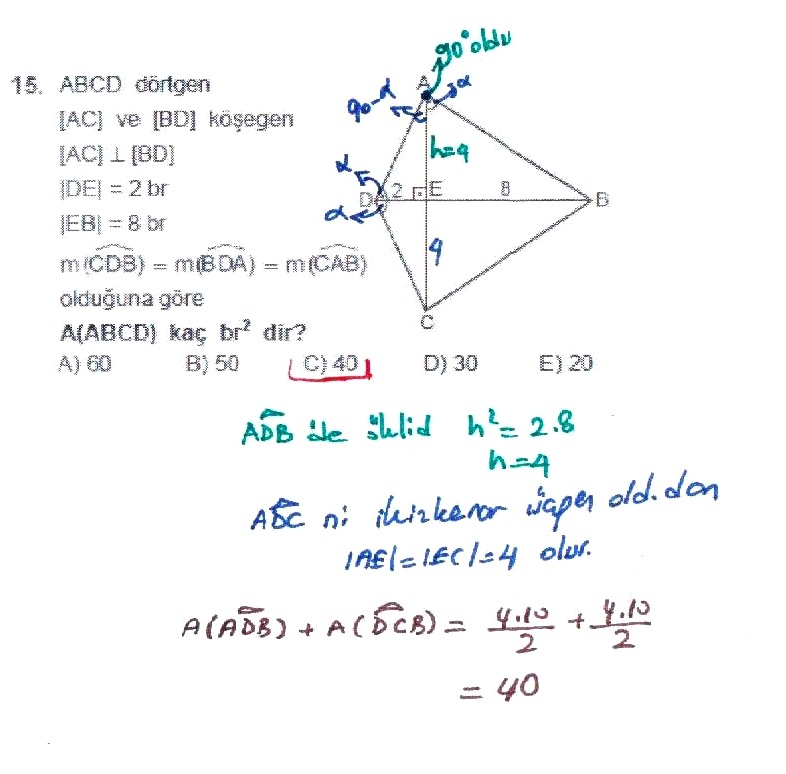 15. ABCD dörtgen
[AC] ve [BD] köşegen
[AC] ⊥ [BD]
|DE| = 2 br
|EB| = 8 br
m(CDB) = m(BDA) = m(CAB)
olduğuna göre
A(ABCD) kaç br² dir?
A) 60 B) 50 C) 40 D) 30 E) 20
90° oldu
A
α
90-α
h=4
α
D 2 E 8 B
α
4
C
ADB de öklid h² = 2.8
h=4
ADC ni ikizkenar üçgen old.dan
|AE|=|EC|=4 olur.
A(ADB) + A(DCB) = 4.10/2 + 4.10/2
= 40